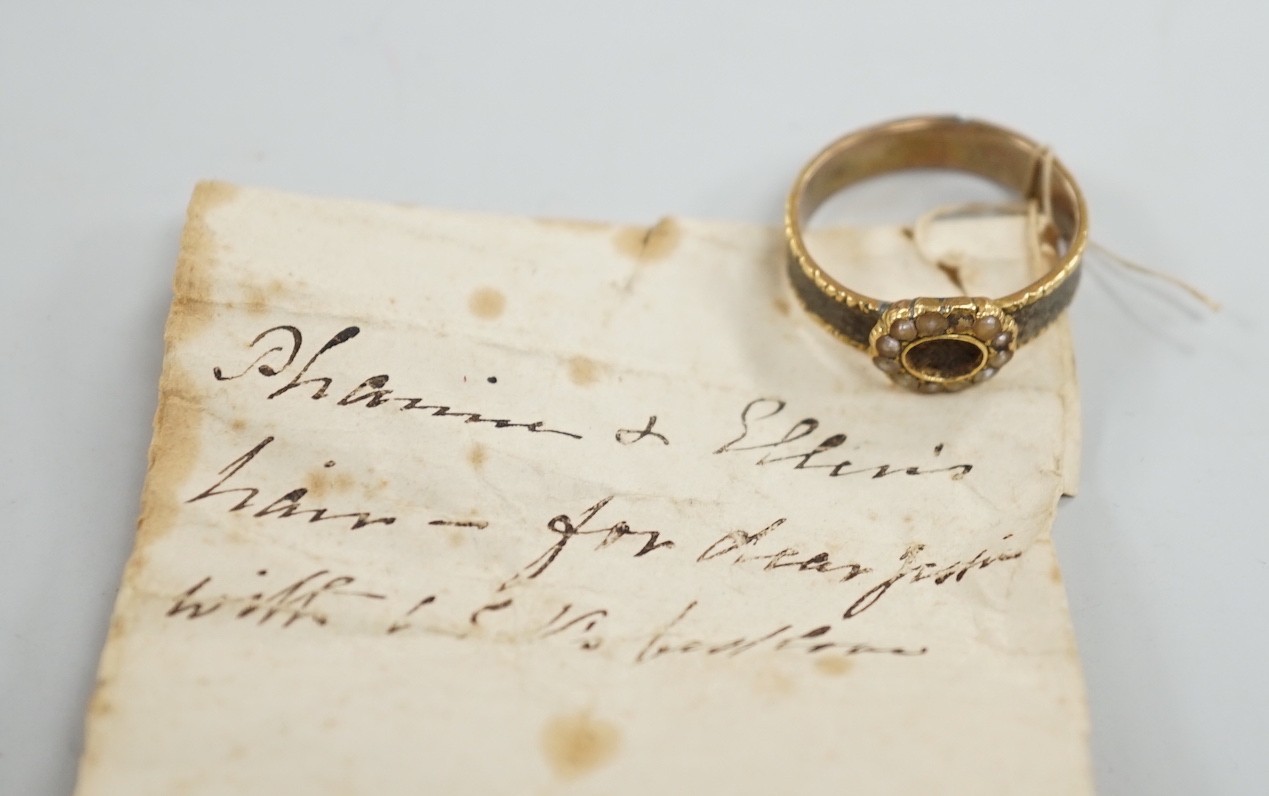 Phanie & Ellen's
hair - for dear Jessie
with best love